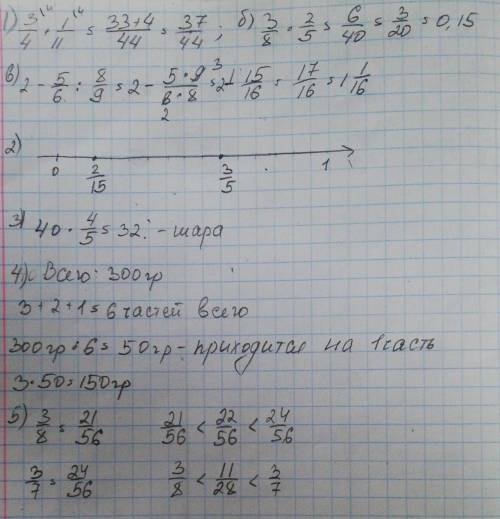 1) 3/4 + 1/11 = 33+4/44 = 37/44 ; б) 3/8 · 2/5 = 6/40 = 3/20 = 0,15
в) 2 - 5/6 : 8/9 = 2 - 5·9/6·8 = 2 - 15/16 = 17/16 = 1 1/16
2)
0 2/15 3/5 1
3) 40 · 4/5 = 32 - шара
4) Всего: 300гр
3+2+1=6 частей всего
300гр : 6 = 50гр - приходится на 1 часть
3·50=150гр
5) 3/8 = 21/56 21/56 < 22/56 < 24/56
3/7 = 24/56 3/8 < 11/28 < 3/7